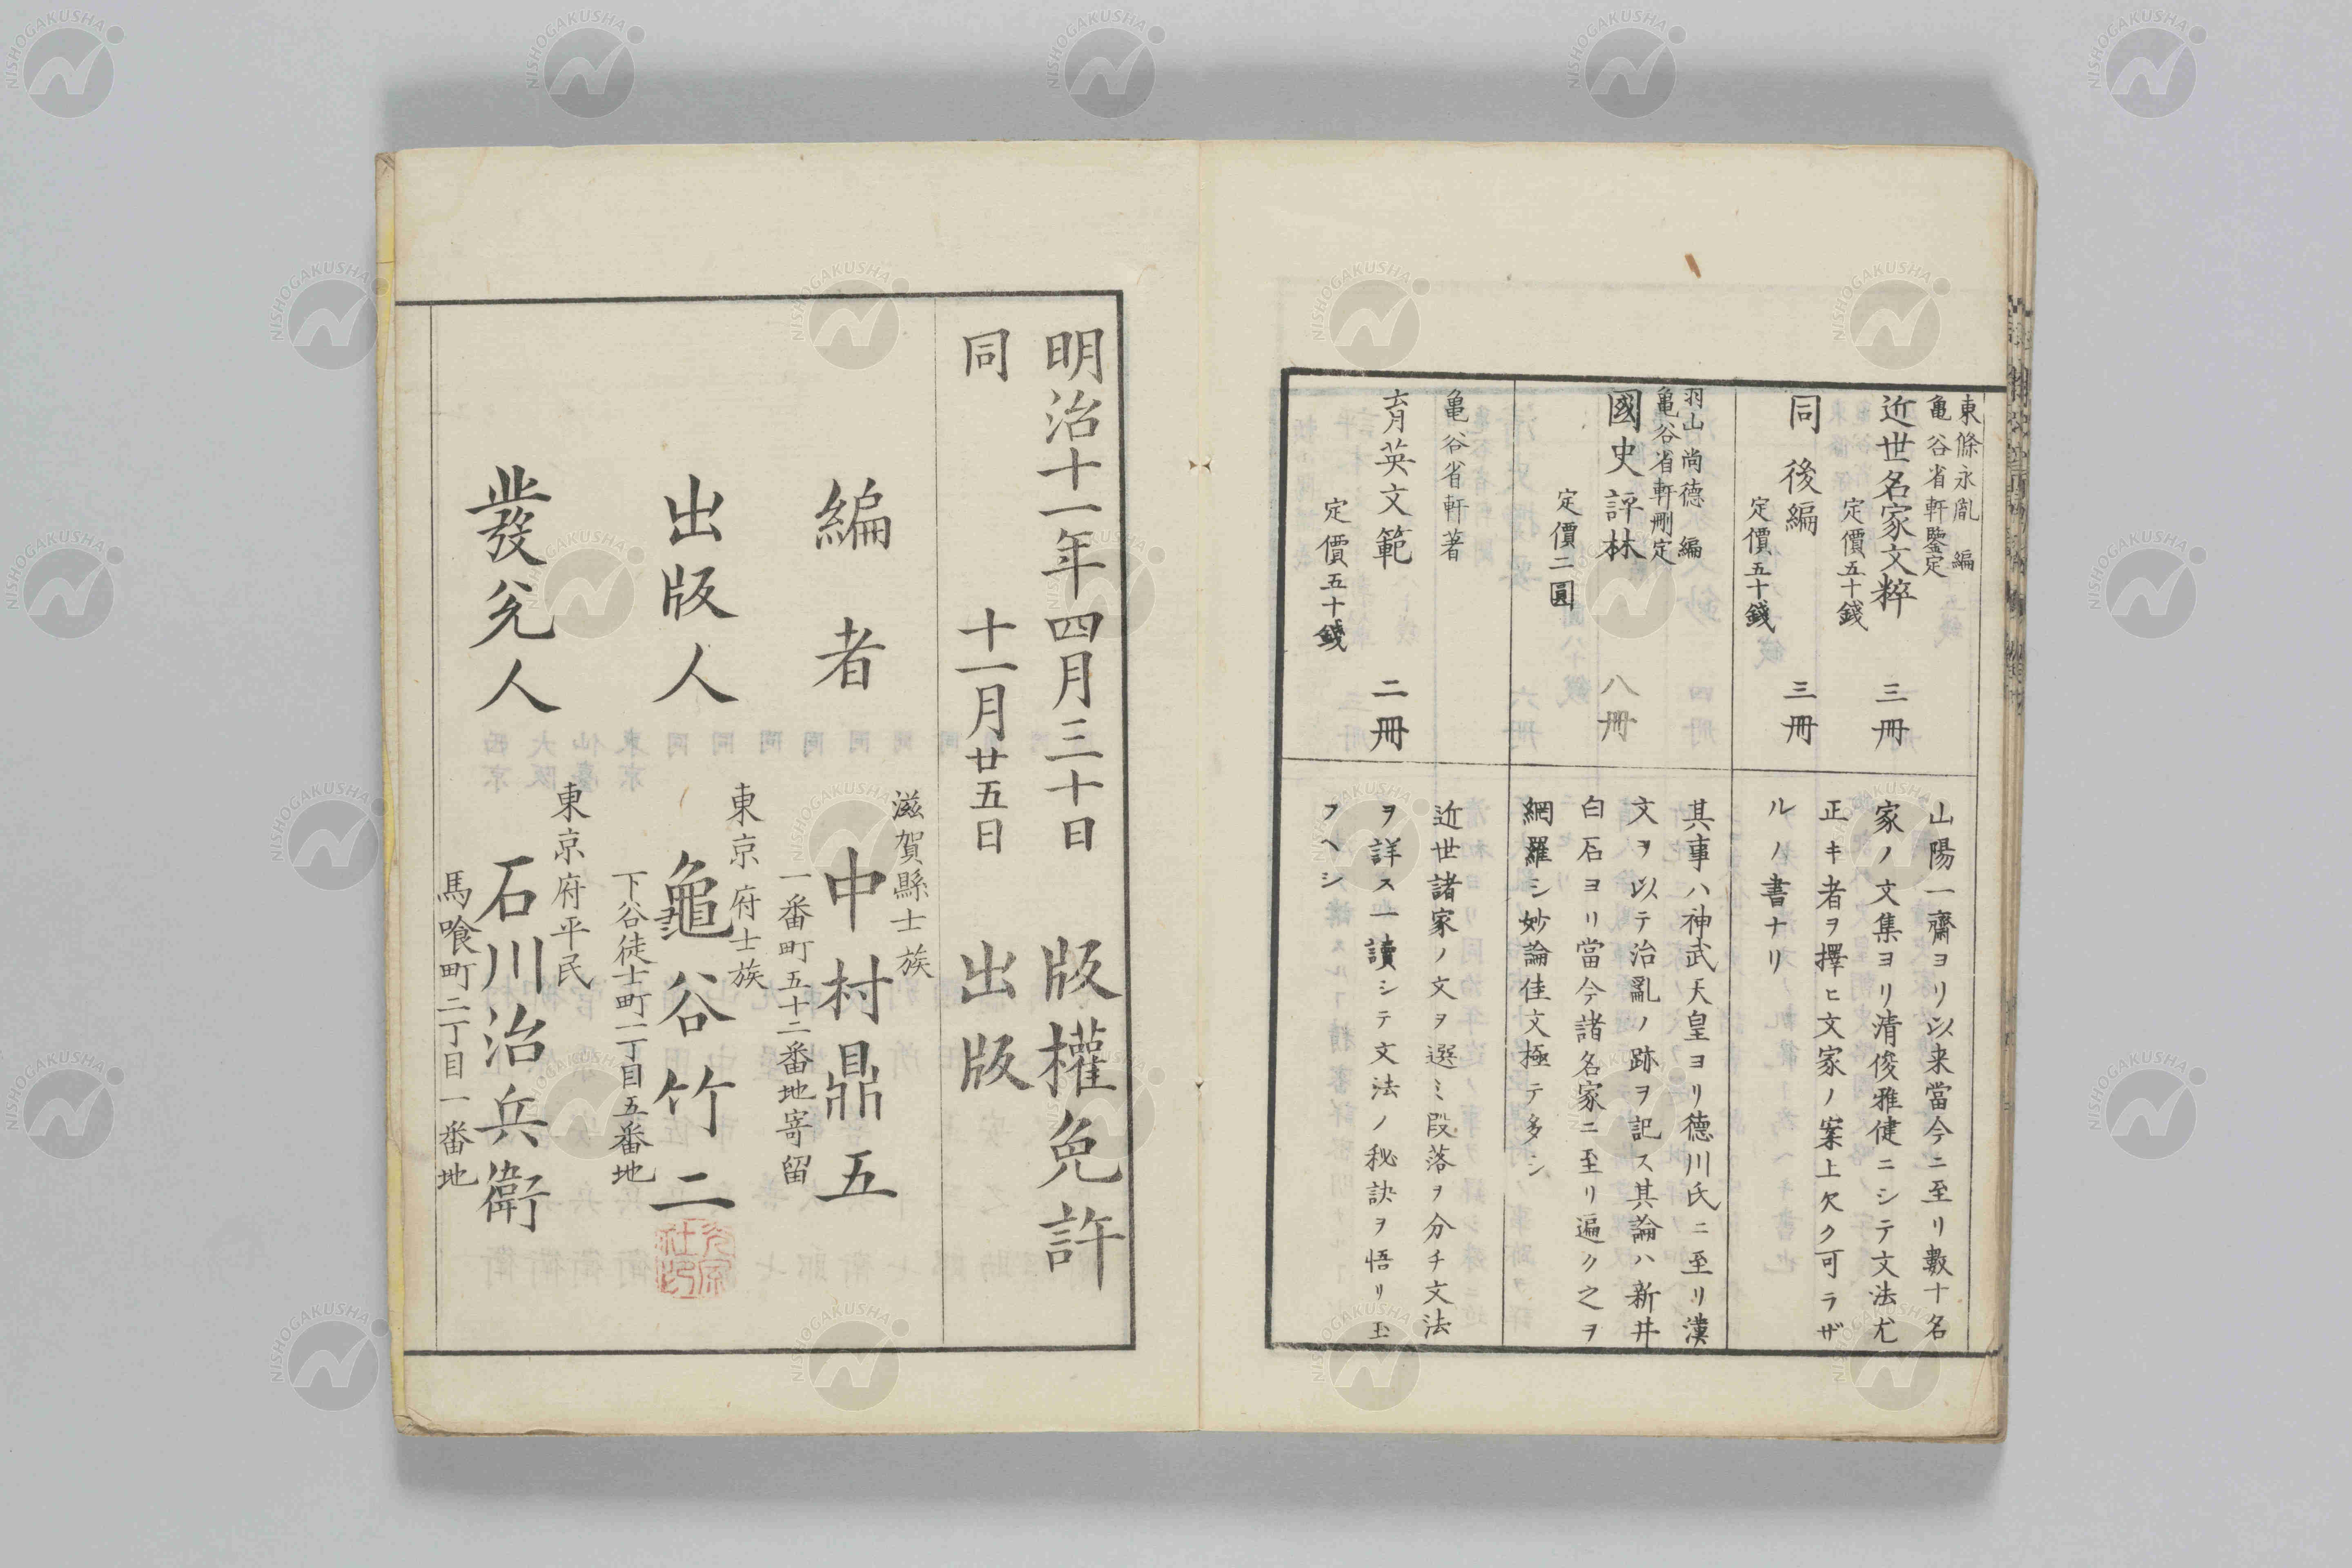 東條永胤 編
亀谷省軒鑒定
近世名家文粹 三冊
定價五十錢
同 後編 三冊
定價五十錢
山陽一齋ヨリ以来當今ニ至リ數十名
家ノ文集ヨリ清俊雅健ニシテ文法尤
正キ者ヲ擇ヒ文家ノ案上欠ク可ラザ
ルノ書ナリ
羽山尚德 編
亀谷省軒刪定
國史評林 八冊
定價二圓
其事ハ神武天皇ヨリ德川氏ニ至リ漢
文ヲ以テ治亂ノ跡ヲ記ス其論ハ新井
白石ヨリ當今諸名家ニ至リ遍ク之ヲ
網羅シ妙論佳文極テ多シ
亀谷省軒著
育英文範 二冊
定價五十錢
近世諸家ノ文ヲ選ミ段落ヲ分チ文法
ヲ詳ス一讀シテ文法ノ秘訣ヲ悟リ玉
フヘシ
明治十一年四月三十日 版權免許
同 十一月廿五日 出版
滋賀縣士族
編者 中村鼎五
一番町五十二番地寄留
東京府士族
出版人 龜谷竹二
下谷徒士町一丁目五番地
東京府平民
發兌人 石川治兵衛
馬喰町二丁目一番地
NISHOGAKUSHA